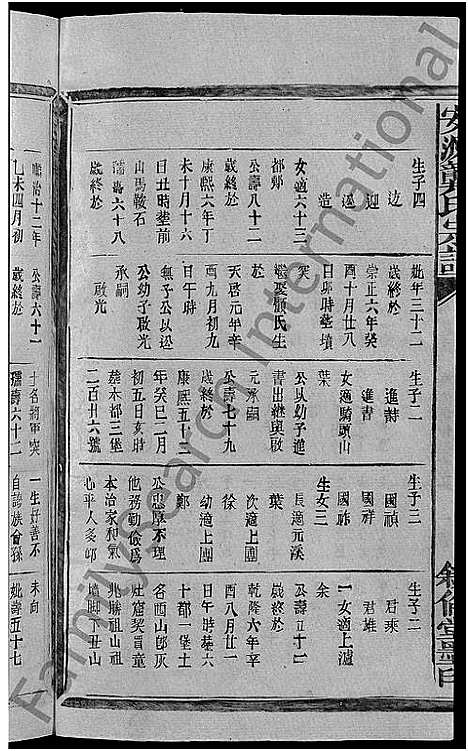 生子四
边
迎
迅
造
女適六十三
都鄭
公壽八十二
歲終於
康熙六年丁
未十月十六
日丑時塟前
山馬鞍石
孺壽六十八
歲終於
順治十二年
乙未四月初
妣年三十二
歲終於
崇正六年癸
酉十月廿八
日卯時塟墳
突
繼娶顏氏生
於
天啟元年辛
酉九月初九
日午時
無子公以迅
公幼子啟光
承嗣
啟光
公壽六十一
歲終於
生子二
進詩
進書
女適騎頭山
葉
公以幼子進
書出繼與啟
元承嗣
公壽七十九
歲終於
康熙五十二
年癸巳二月
初五日亥時
塟本都三堡
二百廿六號
土名將軍突
孺壽六十二
生子三
國禎
國祥
國祚
生女三
長適元溪
葉
次適上田
徐
幼適上田
鄭
公忠厚不理
他務勤儉爲
本治家和氣
心平人多䘏
一生好善不
自誇族曾孫
生子二
君乘
君雄
一女適上濾
余
公壽五十一
歲終於
乾隆六年辛
酉八月廿一
日午時塟六
十都一堡土
名西山郎灰
灶窟契買童
兆勝祖山祖
墳脚下丑山
未向
妣壽五十七
敘倫堂墨印
FamilySearch International